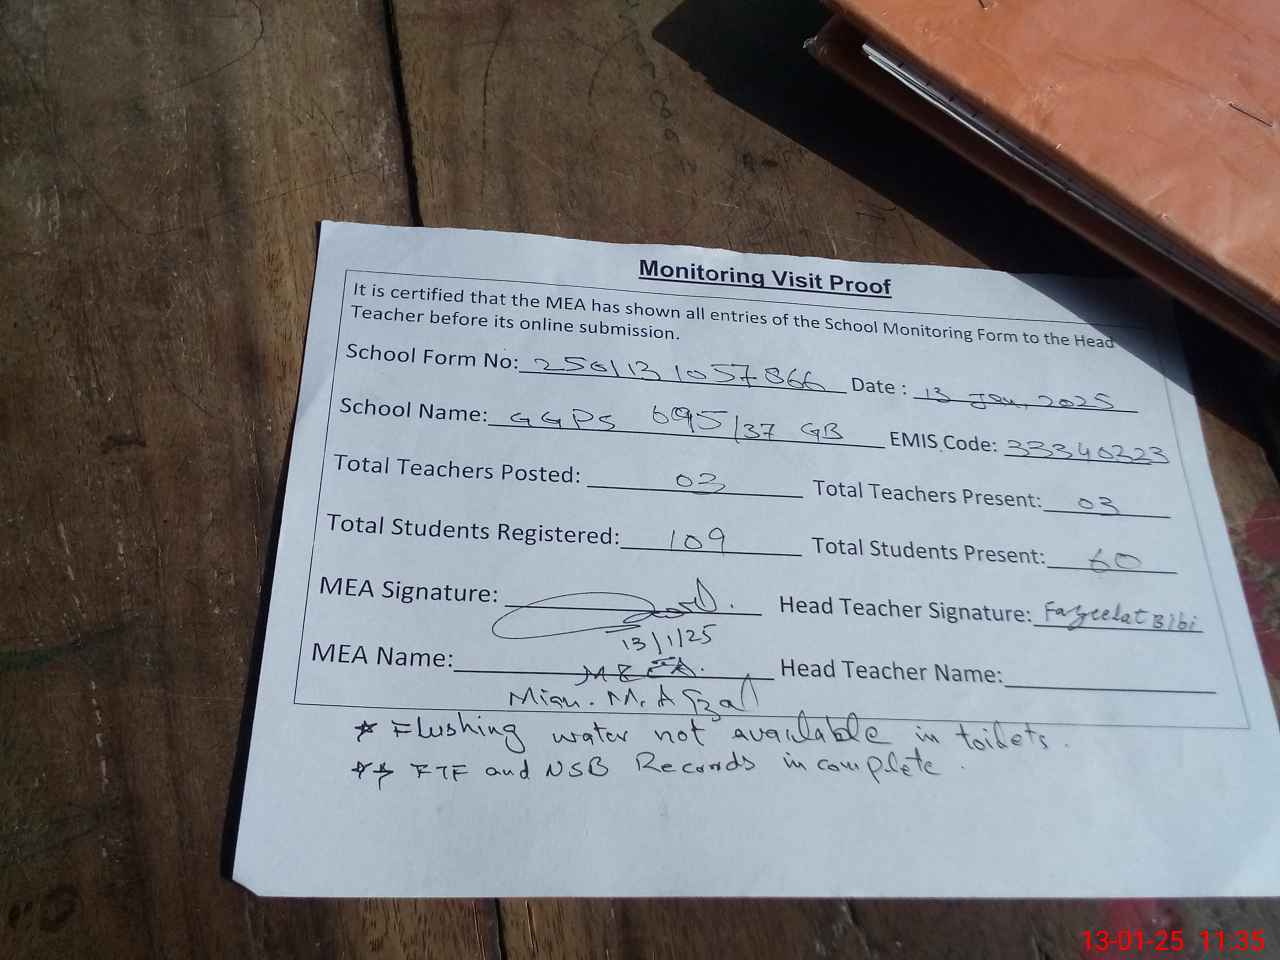 Monitoring Visit Proof
It is certified that the MEA has shown all entries of the School Monitoring Form to the Head
Teacher before its online submission.
School Form No: 250113 1057866 Date : 13 Jan, 2025
School Name: GGPS 695/37 GB EMIS Code: 33340223
Total Teachers Posted: 03 Total Teachers Present: 03
Total Students Registered: 109 Total Students Present: 60
MEA Signature: Head Teacher Signature: Fazeelat Bibi
13/1/25
MEA Name: MEEA. Head Teacher Name:
Mian. M. Afzal
* Flushing water not available in toilets.
** FTF and NSB Records incomplete.
13-01-25 11:35